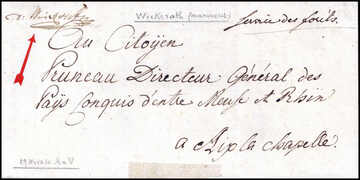 Wickrath (manuscrit)
Service des fouls.
Au Citoÿen
Pruneau Directeur Général des
Païs Conquis d'entre Meuse et Rhin
a Aix la Chapelle.